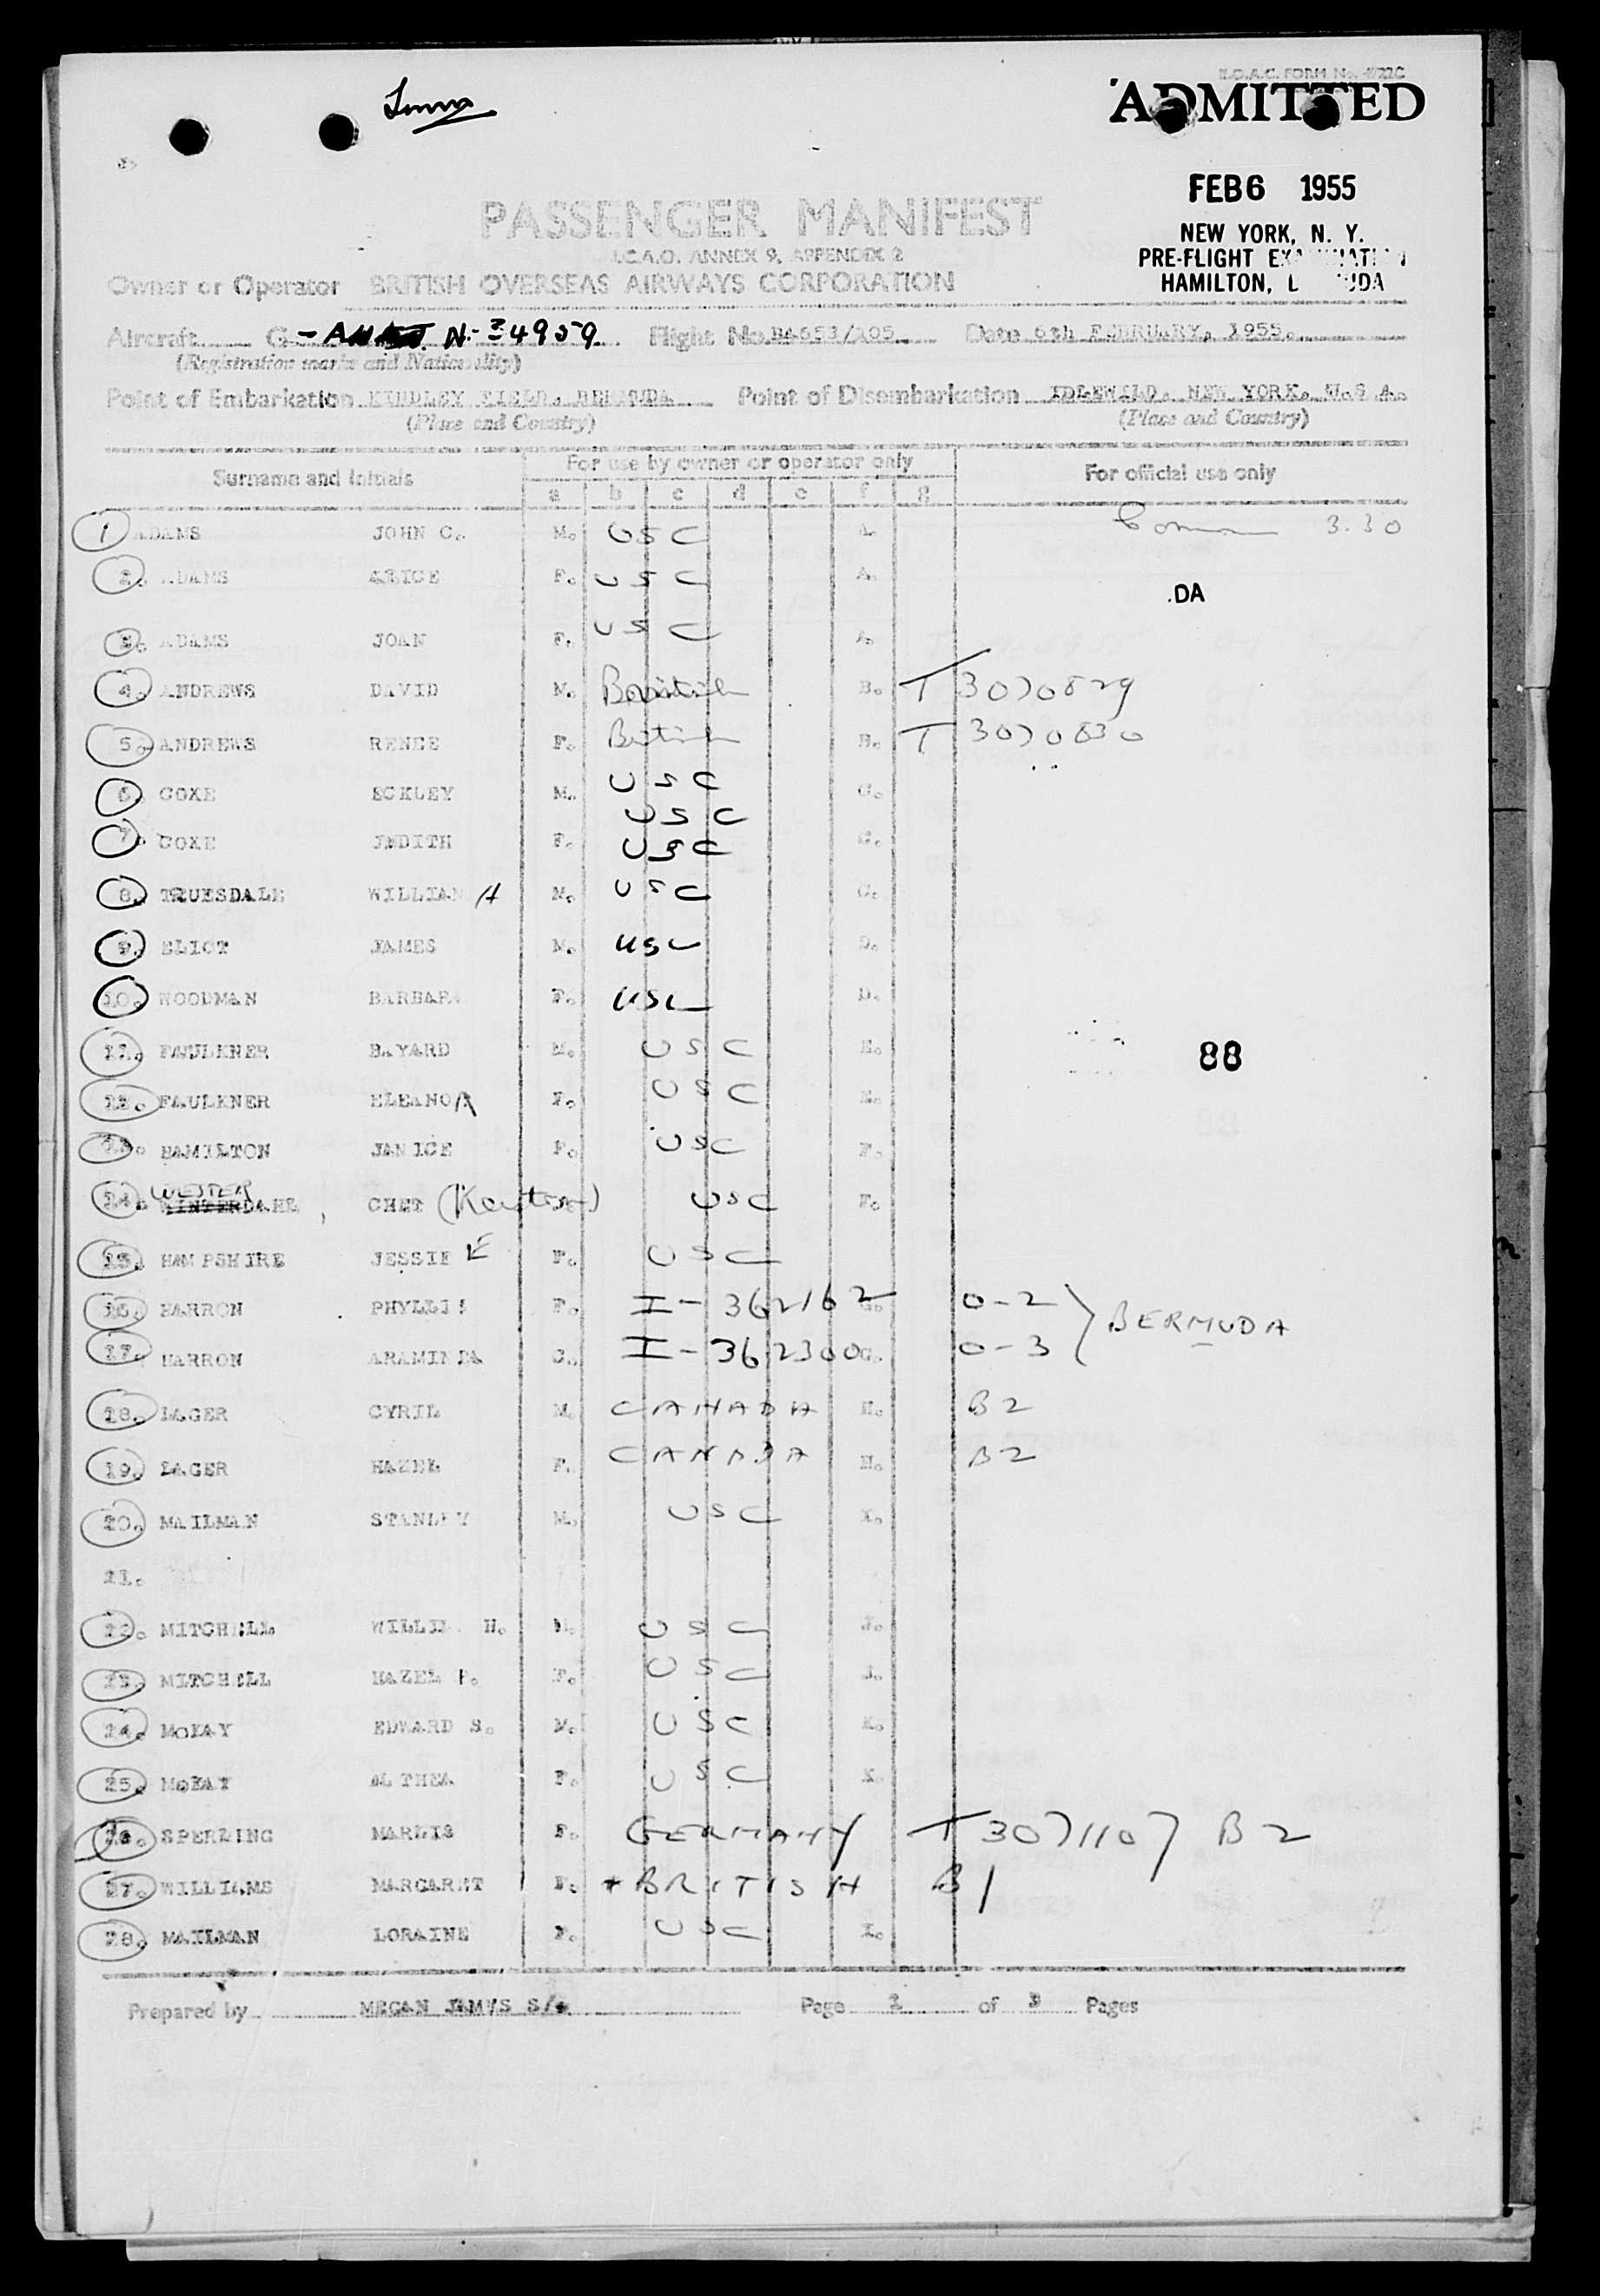 B.O.A.C. FORM No.
ADMITTED
FEB 6 1955
NEW YORK, N. Y.
PRE-FLIGHT
HAMILTON,
PASSENGER MANIFEST
I.C.A.O. ANNEX 9, APPENDIX 2
Owner or Operator BRITISH OVERSEAS AIRWAYS CORPORATION
Aircraft G- N-34959 Flight No. BA653/105. Date 6th FEBRUARY, 1955.
(Registration marks and Nationality)
Point of Embarkation KINDLEY FIELD, BERMUDA Point of Disembarkation IDLEWILD, NEW YORK, U.S.A.
(Place and Country) (Place and Country)
Surname and Initials For use by owner or operator only For official use only
a b c d e f g
1 ADAMS JOHN C. M. USC A. 3.30
2. ADAMS ALICE F. USC A.
.DA
3. ADAMS JOAN F. USC A.
4. ANDREWS DAVID M. British B. T 3070829
5. ANDREWS RENEE F. British B. T 3070830
6. COXE ECKLEY M. USC C.
USC
7. COXE JUDITH F. USC C.
8. TRUESDALE WILLIAM A M. USC C.
9. ELIOT JAMES M. USC D.
10. WOODMAN BARBARA F. USC D.
11. FAULKNER BAYARD M. USC E.
88
12. FAULKNER ELEANOR F. USC E.
13. HAMILTON JANICE F. USC F.
14. WESTER WINTERDAHL CHET USC F.
15. HAMPSHIRE JESSIE E F. USC
16. HARRON PHYLLIS F. I-362162 G. O-2
BERMUDA
17. HARRON ARAMINDA I-362300 G. O-3
18. LAGER CYRIL M. CANADA H. B2
19. LAGER HAZEL F. CANADA H. B2
20. MAILMAN STANLEY M. USC I.
21.
22. MITCHELL H. M. USC J.
23. MITCHELL HAZEL F. USC J.
24. McKAY EDWARD S. M. USC K.
25. McKAY ALTHEA F. USC K.
26. SPERLING MARLIS F. GERMANY T 3071107 B2
27. WILLIAMS MARGARET F. BRITISH B1
28. MAILMAN LORAINE F. USC I.
Prepared by MEGAN Page 1 of 3 Pages